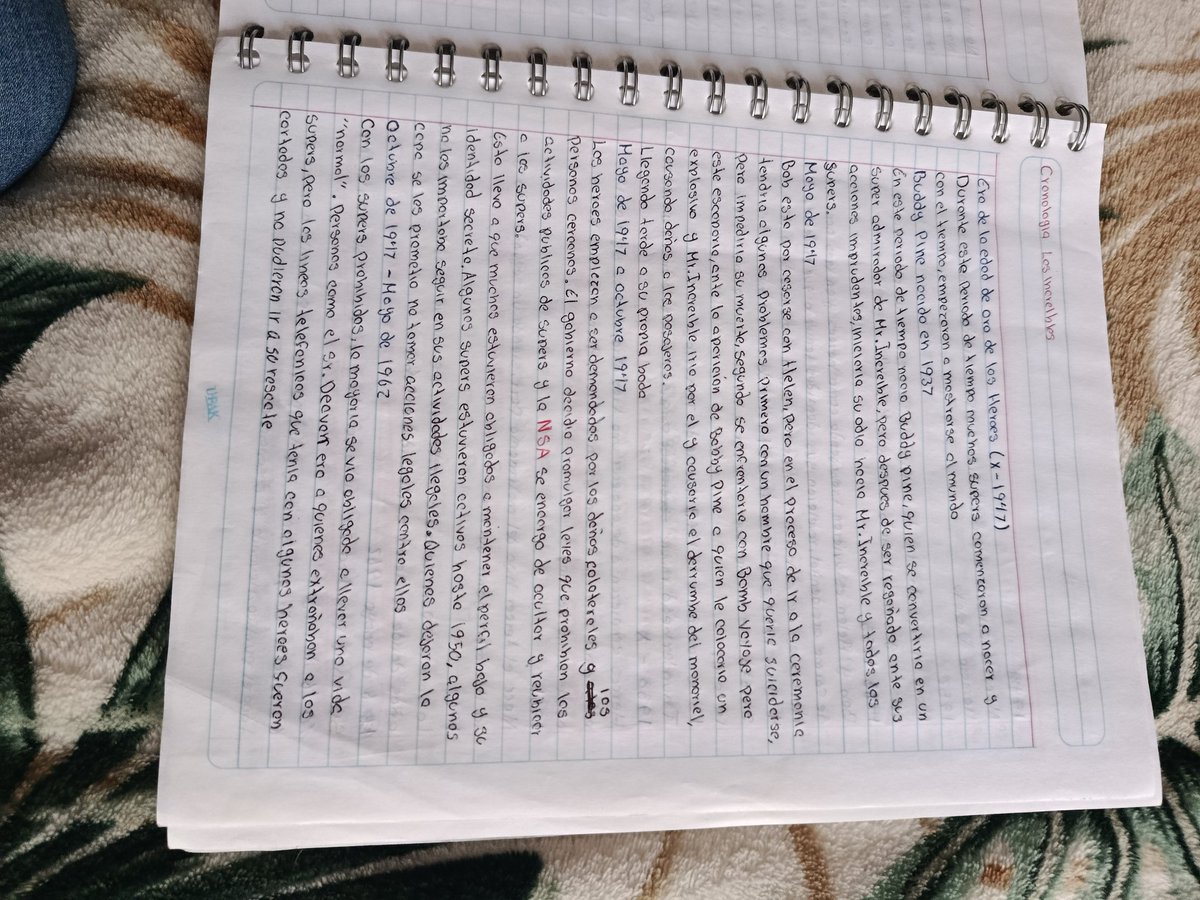 Cronologia Los Increibles
Era de la edad de oro de los Heroes (x-1947)
Durante este periodo de tiempo muchos supers comenzaron a nacer y
con el tiempo, empezaron a mostrarse al mundo
Buddy Pine nacido en 1937
En este periodo de tiempo nacio Buddy pine, quien se convertiria en un
super admirador de Mr. Increible, pero despues de ser regañado ante sus
acciones imprudentes, iniciaria su odio hacia Mr. Increible y todos los
supers.
Mayo de 1947
Bob esta por casarse con Helen, pero en el proceso de ir a la ceremonia
tendria algunos problemas primero con un hombre que queria suicidarse,
pero impediria su muerte, segundo se enfrentaria con Bomb Voyage pero
este escaparia, ante la aparicion de Bobby Pine a quien le colocaria un
explosivo y Mr. Increible iria por el y causaria el derrumbe del monoriel,
causando daños a los pasajeros
Llegando tarde a su propia boda
Mayo de 1947 a octubre 1947
Los heroes empiezan a ser demandados por los daños colaterales y los
personas cercanas. El gobierno decidio promulgar leyes que prohiben las
actividades publicas de supers y la NSA se encargo de ocultar y reubicar
a los supers.
Esto llevo a que muchos estuvieron obligados a mantener el perfil bajo y su
identidad secreta. Algunos supers estuvieron activos hasta 1950, algunos
no les importaba seguir en sus actividades ilegales. Quienes dejaron la
capa se les prometio no tomar acciones legales contra ellos
Octubre de 1947 - Mayo de 1962
Con los supers prohibidos, la mayoria se vio obligada a llevar una vida
"normal". Personas como el Sr. Deavor era a quienes extrañaban a los
supers, pero las lineas telefonicas que tenia con algunos heroes fueron
cortadas y no pudieron ir a su rescate